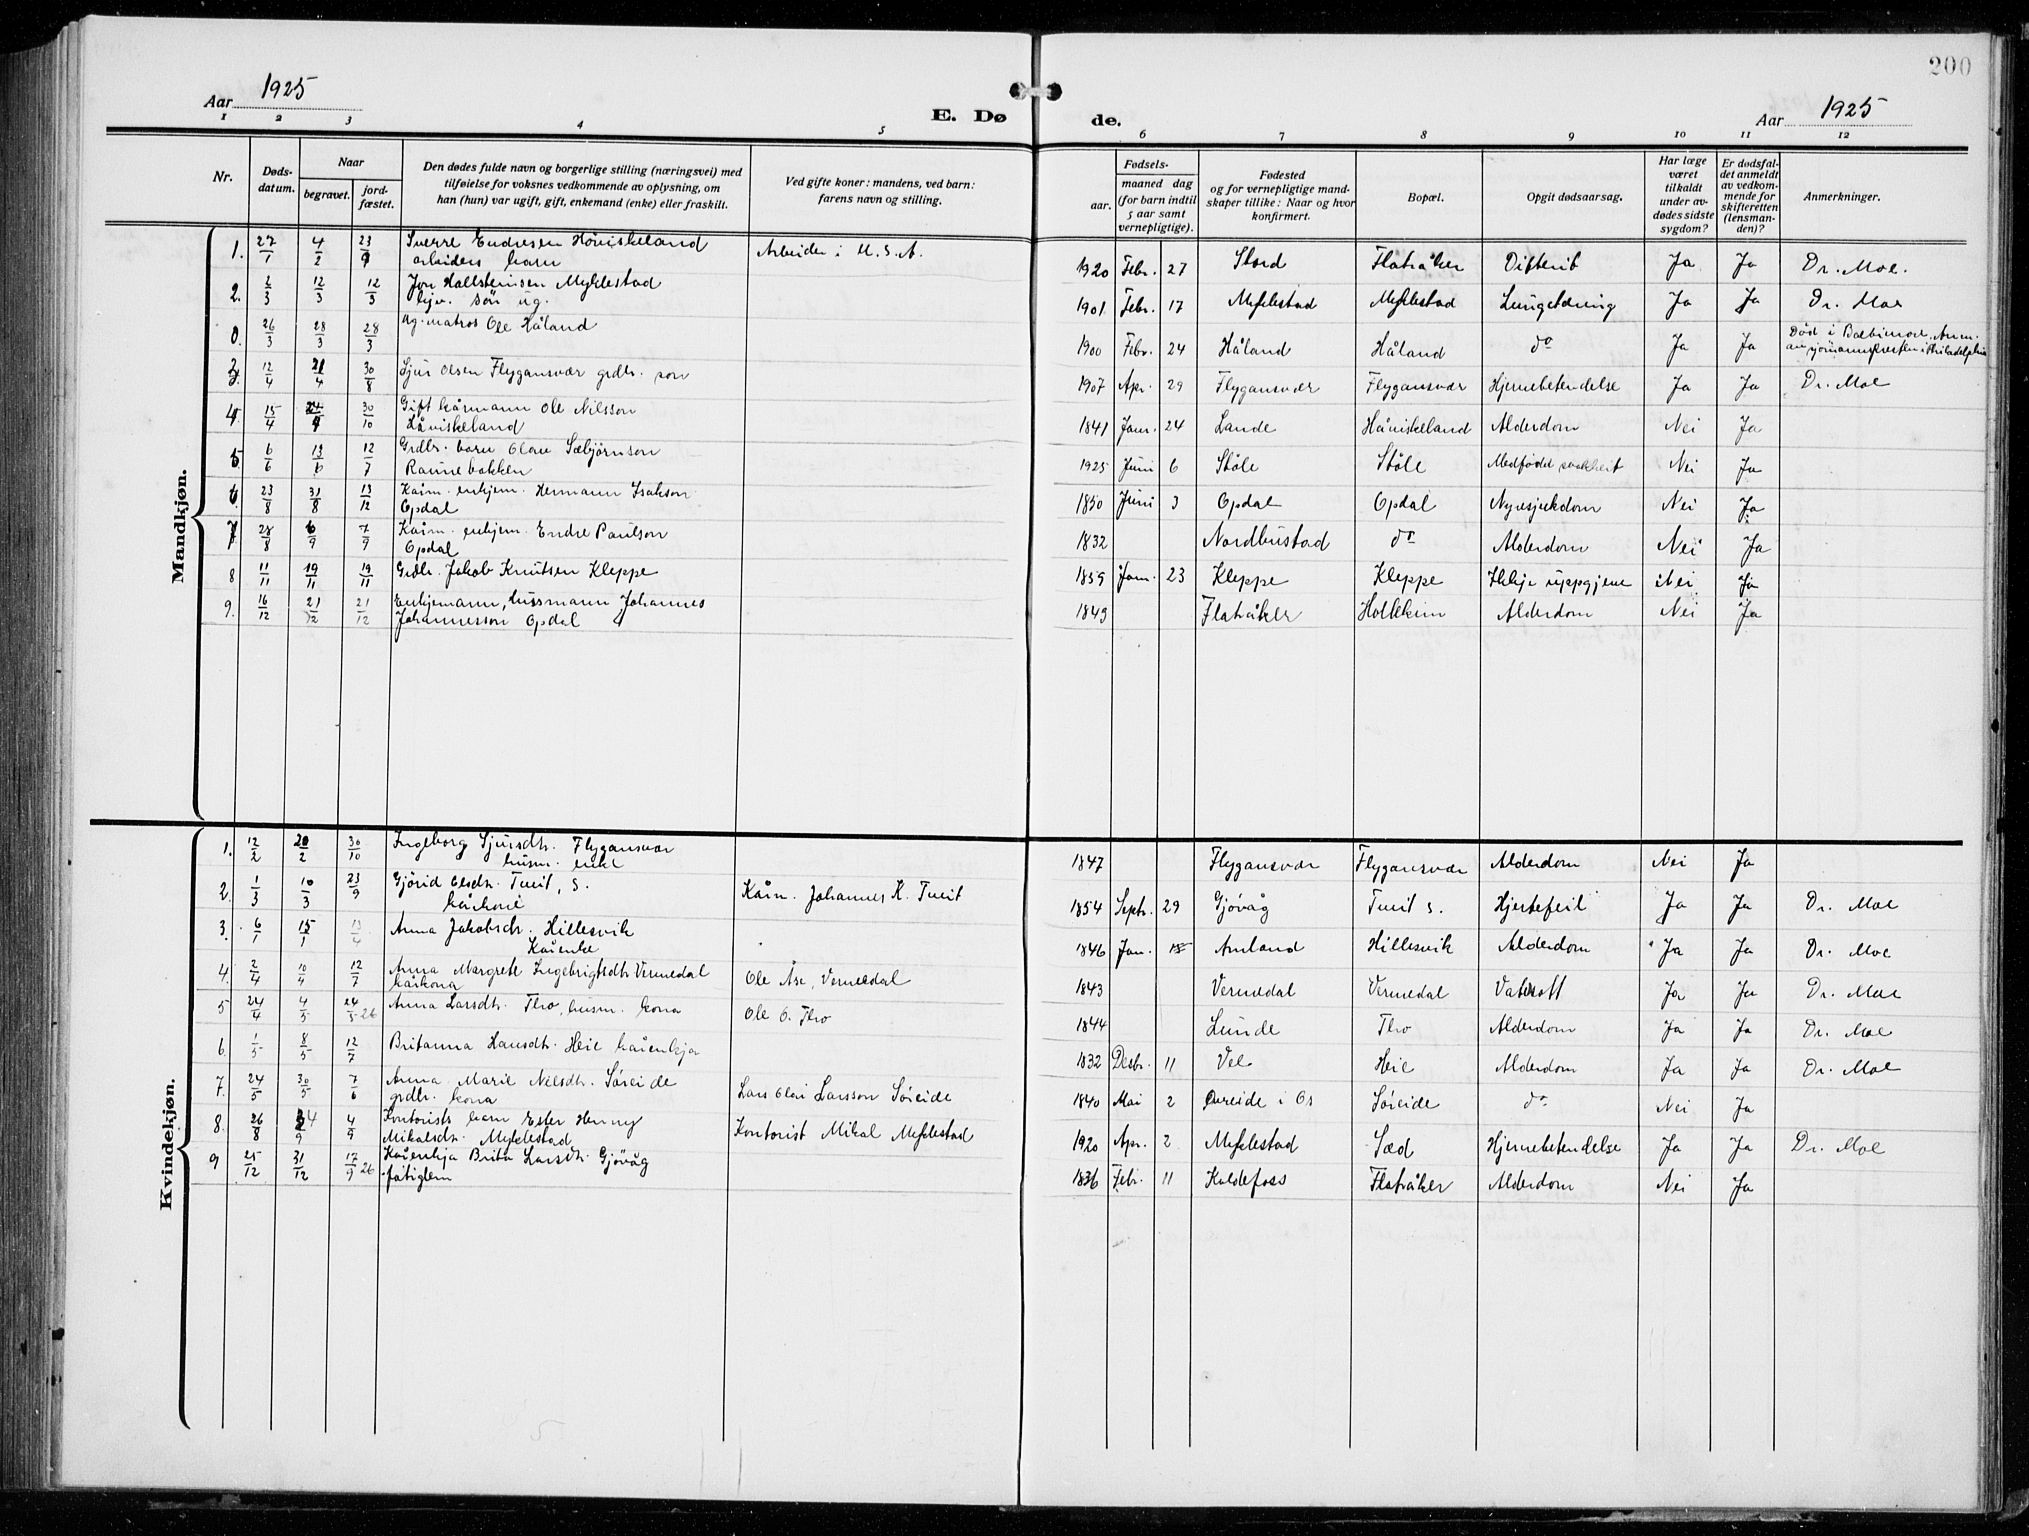 200
Aar 1925
E. Dø
de.
Aar 1925
1 2 3 4 5 6 7 8 9 10 11 12
Nr.
Døds-
datum.
Naar
begravet.
jord-
fæstet.
Den dødes fulde navn og borgerlige stilling (næringsvei) med
tilføielse for voksnes vedkommende av oplysning, om
han (hun) var ugift, gift, enkemand (enke) eller fraskilt.
Ved gifte koner: mandens, ved barn:
farens navn og stilling.
Fødsels-
aar.
maaned dag
(for barn indtil
5 aar samt
vernepligtige).
Fødested
og for vernepligtige mand-
skaper tillike: Naar og hvor
konfirmert.
Bopæl.
Opgit dødsaarsag.
Har læge
været
tilkaldt
under av-
dødes sidste
sygdom?
Er dødsfal-
det anmeldt
av vedkom-
mende for
skifteretten
(lensman-
den)?
Anmerkninger.
Mandkjøn.
1. 27/1 4/2 23/9 Sverre Endresen Hòviskeland Arbeider i U.S.A. 1920 Febr. 27 Stord Flatråker Difterit Ja Ja Dr. Moe.
arbeiders barn
2. 2/3 12/3 12/3 Jon Hallsteinsen Myklestad 1901 Febr. 17 Myklestad Myklestad Lungetæring Ja Ja Dr. Moe
son ug.
0. 26/3 28/3 28/3 ug. matros Ole Håland 1900 Febr. 24 Håland Håland do Ja Ja Død i
3. 12/4 21/4 30/8 Sjur Olsen Flygansvær grdbr. son 1907 Apr. 29 Flygansvær Flygansvær Hjernebetendelse Ja Ja Dr. Moe
4. 15/4 30/10 Gift kårmann Ole Nilsson 1841 Janr. 24 Lande Håviskeland Alderdom Nei Ja
5. 6/6 13/6 12/7 Grdbr. barn Olav Sæbjørnson 1925 Juni 6 Støle Støle Medfødt svakheit Nei Ja
Raunebakken
6. 23/8 31/8 13/12 Kårm. enkjem. Hermann Isakson 1850 Juni 3 Opdal Opdal Nyresjukdom Nei Ja
Opdal
7. 28/8 6/9 7/9 Kårm. enkjem. Endre Paulson 1832 Nordhustad do Alderdom Nei Ja
Opdal
8 11/11 19/11 19/11 Grdbr. Jakob Knutsen Kleppe 1859 Jan. 23 Kleppe Kleppe Ikkje uppgjeve Nei Ja
9. 16/12 21/12 21/12 Enkjemann, husmann Johannes 1849 Flatråker Holekim Alderdom Nei Ja
Johannesson Opdal
Kvindekjøn.
1. 12/2 20/2 30/10 Ingeborg Sjursdtr. Flygansvær 1847 Flygansvær Flygansvær Alderdom Nei Ja
husm. enke
2. 1/3 10/3 23/9 Gjørid Olsdtr. Tveit, s. Kårm. Johannes K. Tveit 1854 Septr. 29 Gjøvåg Tveit s. Hjertefeil Ja Ja Dr. Moe
kårkone
3. 6/1 15/1 13/4 Anna Jakobsdtr. Hillesvik 1846 Jan. 15 Amland Hillesvik Alderdom Ja Ja Dr. Moe
Kårenke
4. 2/4 10/4 12/7 Anna Margrete Ingebrigtsdtr. Vernedal Ole Åse, Vernedal 1843 Vernedal Vernedal Vatersott Ja Ja Dr. Moe
kårkona
5 24/4 4/5 24/5 26 Anna Larsdtr. Tho, husm. kona Ole O. Tho 1844 Lunde Tho Alderdom Ja Ja Dr. Moe
6. 1/5 8/5 12/7 Britanna Hansdtr. Heie kårenkja 1832 Desbr. 11 Vee Heie Alderdom Ja Ja Dr. Moe
7. 24/5 30/5 7/6 Anna Marie Nilsdtr. Søreide Lars Olai Larsson Søreide 1840 Mai 2 i Os Søreide do Nei Ja
grdbr. kona
8. 26/8 4/9 4/9 Kontorists barn Ester Henny Kontorist Mikal Myklestad 1920 Apr. 2 Myklestad Sæd Hjernebetendelse Ja Ja Dr. Moe
Mikalsdtr. Myklestad
9 25/12 31/12 17/9 26 Kårenkja Brita Larsdtr. Gjøvåg 1836 Febr. 11 Kaldefoss Flatråker Alderdom Nei Ja
fatiglem